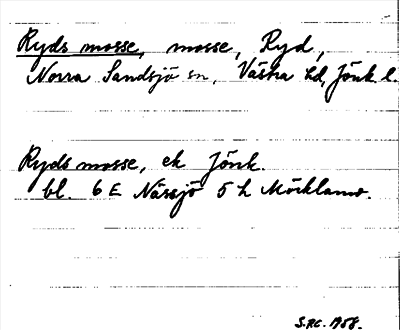 Ryds mosse, mosse, Ryd,
Norra Sandsjö sn, Västra hd, Jönk. l.
Ryds mosse, ek Jönk.
bl. 6 E Nässjö 5 h Mörklamo.
1958.